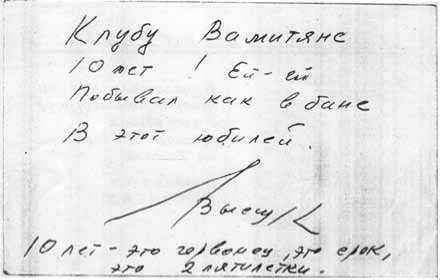 Клубу Вамитяне
10 лет ! Ей-ей
Побывал как в бане
В этот юбилей.
Высоц
10 лет - это червонец, это срок,
это 2 пятилетки.